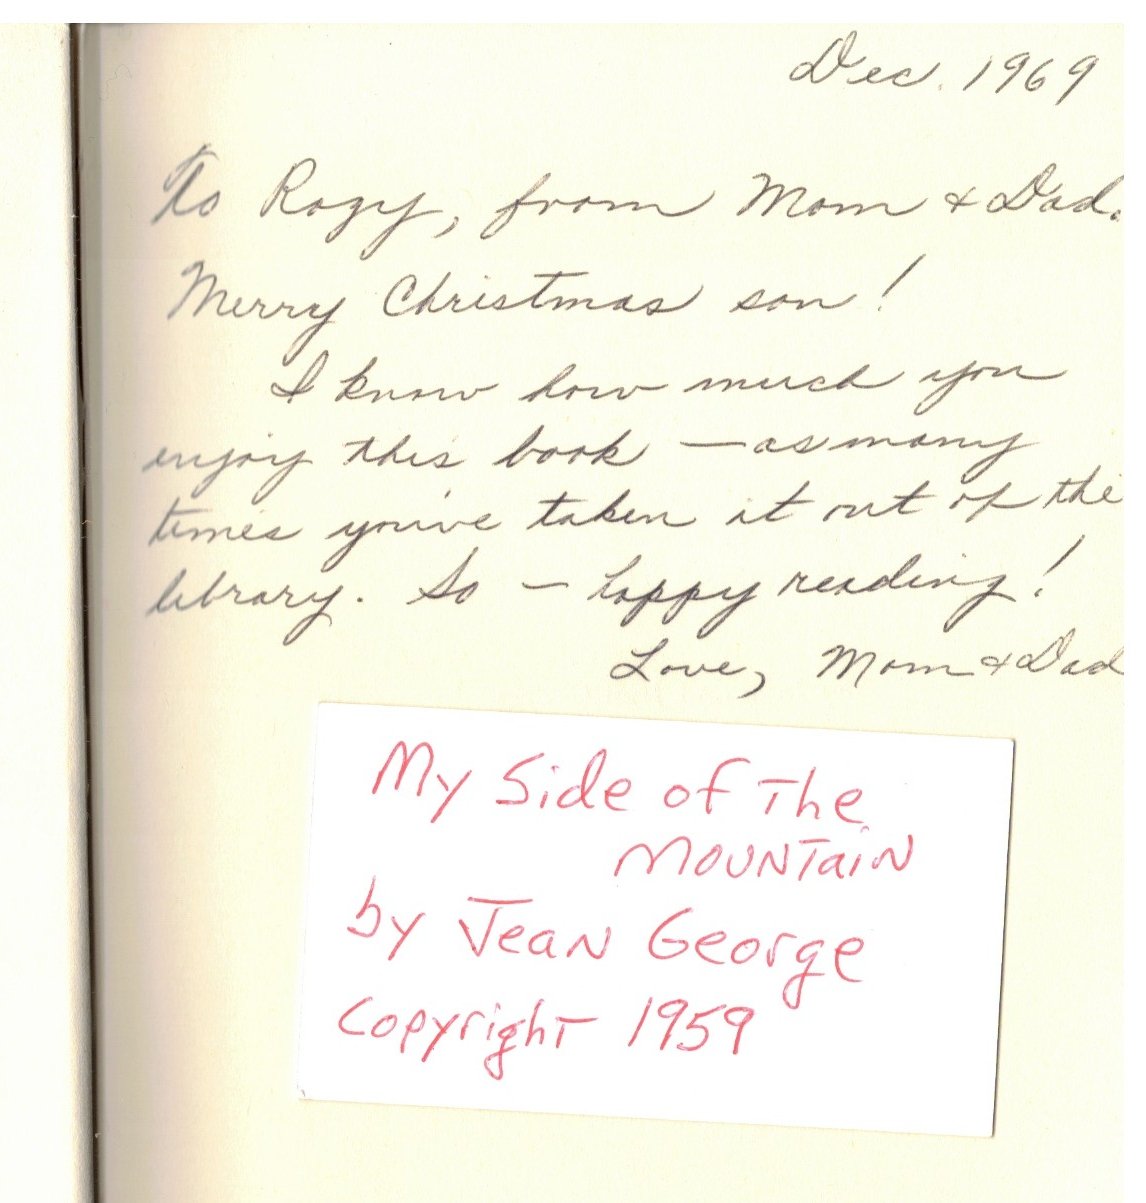 Dec. 1969
To Rogy, from Mom & Dad.
Merry Christmas son!
I know how much you
enjoy this book — as many
times you've taken it out of the
library. So — happy reading!
Love, Mom & Dad
My Side of The
MOUNTaiN
by JeaN George
Copyright 1959